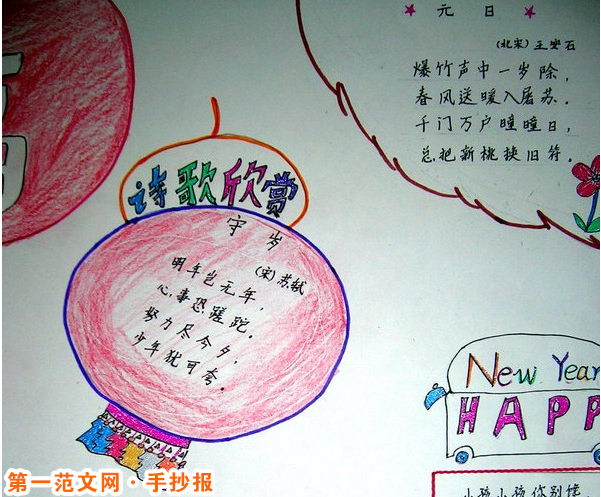 元 日
(北宋) 王安石
爆竹声中一岁除，
春风送暖入屠苏。
千门万户瞳瞳日，
总把新桃换旧符。
诗歌欣赏
守 岁
(宋) 苏轼
明年岂无年，
心事恐蹉跎。
努力尽今夕，
少年犹可夸。
New Year
HAPP
小孩小孩你别馋
第一范文网·手抄报